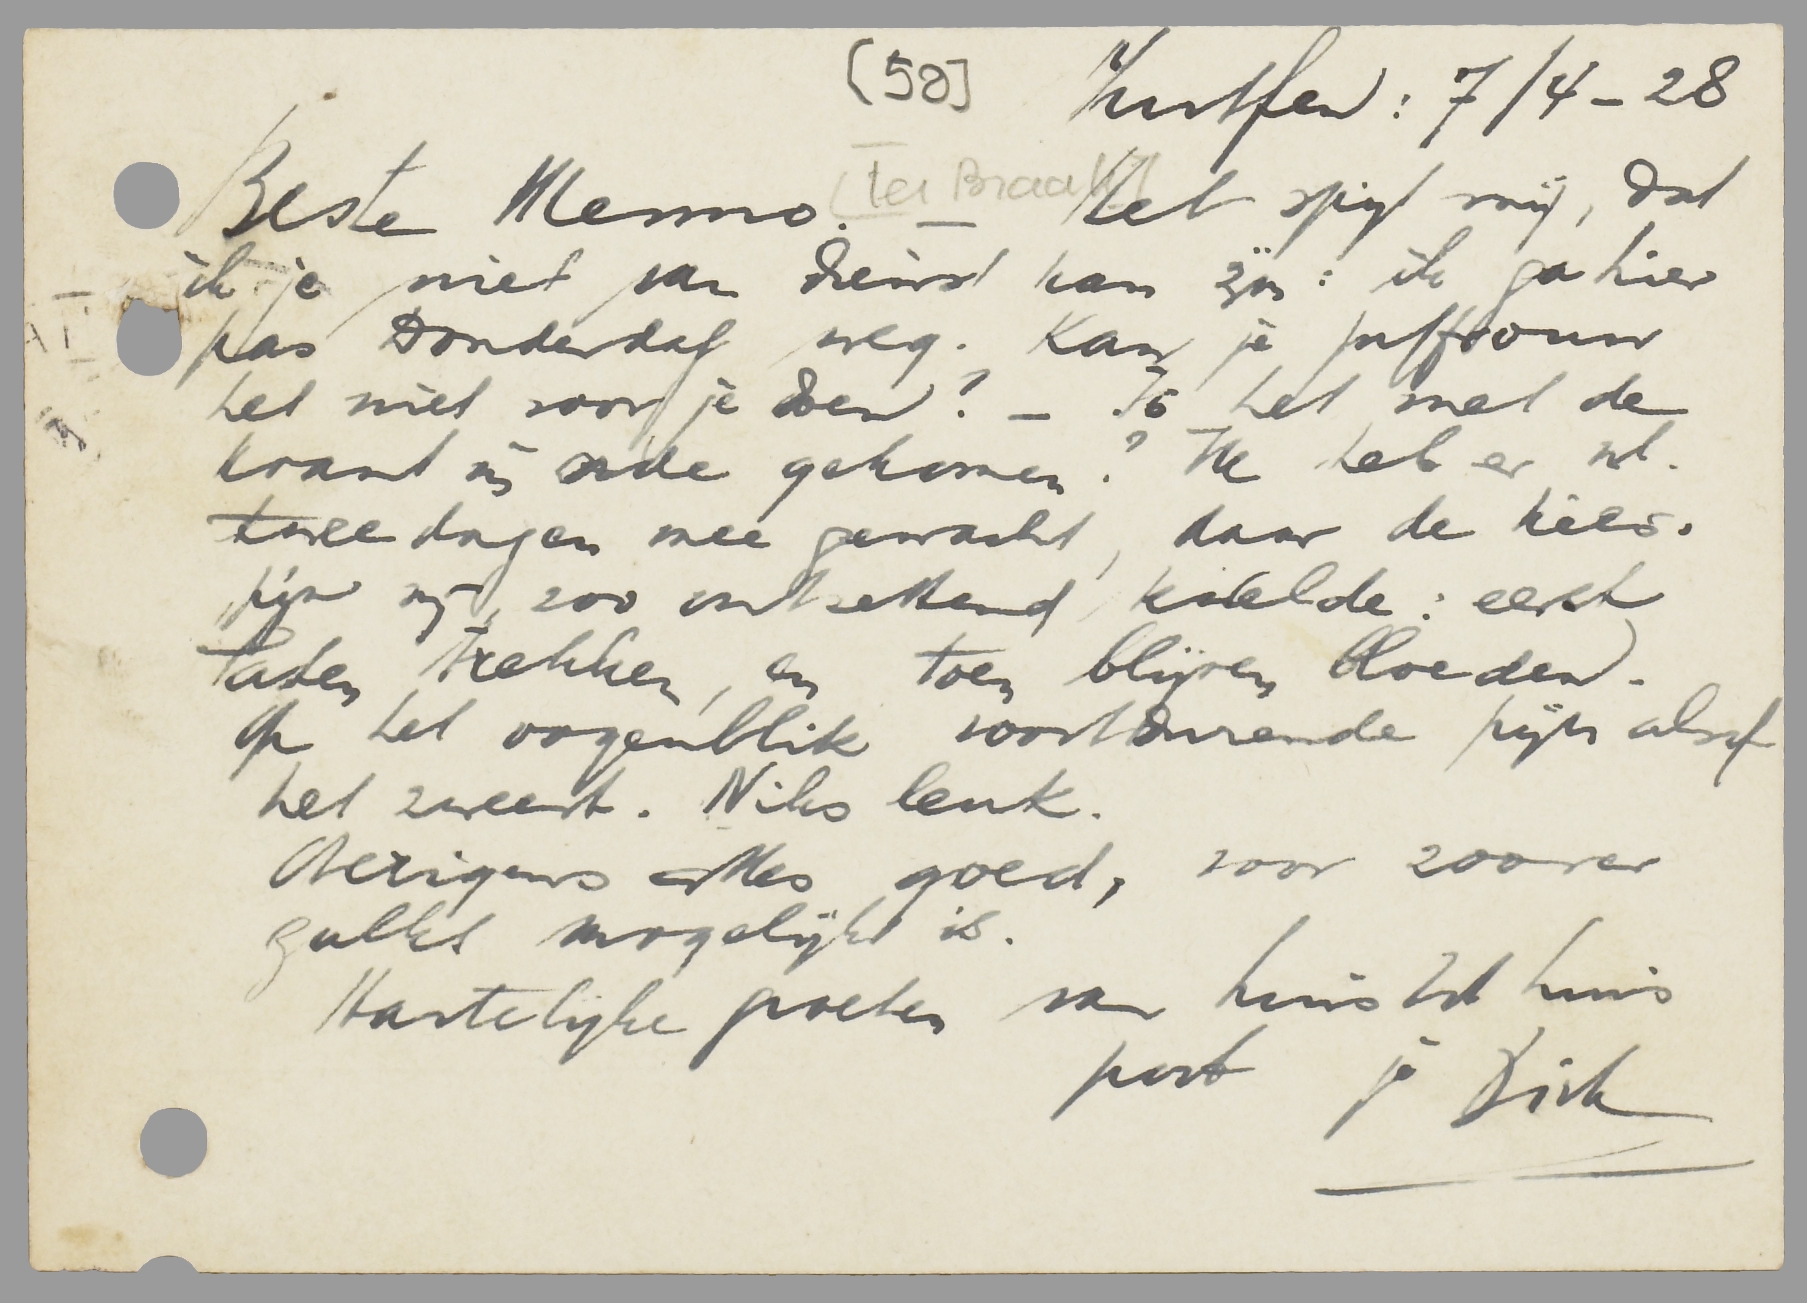 [50] Zutfen: 7/4-28
Beste Menno. (ter Braak) — Het spijt mij, dat
ik je niet van dienst kan zijn: ik ga hier
pas Donderdag weg. Kan je juffrouw
het niet voor je doen? — Is het met de
krant in orde gekomen? Ik heb er nl.
twee dagen mee gewacht, daar de kies-
pijn mij zoo ontzettend kwelde: eerst
laten trekken, en toen blijven bloeden.
Op het oogenblik voortdurende pijn alsof
het zweert. Niks leuk.
Overigens alles goed, voor zoover
zulks mogelijk is.
Hartelijke groeten van huis tot huis
je Dirk